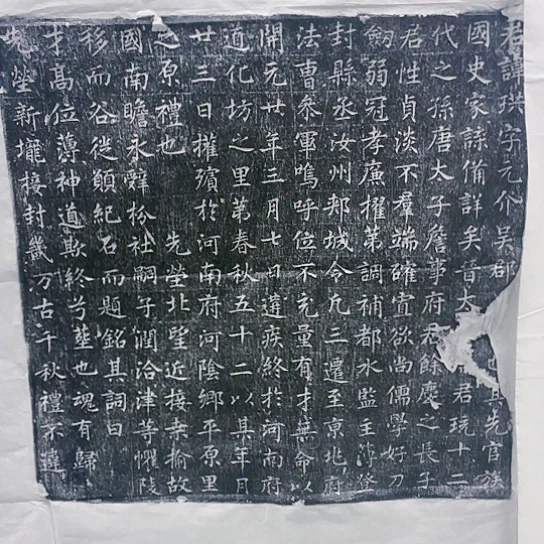 君諱珙字元介吳郡也其先官族
國史家諜備詳矣晉太君玩十二
代之孫唐太子詹事府君餘慶之長子
君性貞淡不羣端確寡欲尚儒學好刀
劒弱冠孝廉擢第調補都水監主簿登
封縣丞汝州郏城令凡三遷至東北府
法曹叅軍嗚呼位不充量有才無命以
開元廿年三月七日遘疾終於河南府
道化坊之里第春秋五十二以其年月
廿三日權殯於河南府河陰鄉平原里
之原禮也先塋北望近接桒榆故
國南瞻永辭枌社嗣子潤洽津等懼陵
移而谷徙願紀石而題銘其詞曰
才高位薄神道欺終兮塟也魂有歸
先塋新壠接封畿万古千秋禮不違